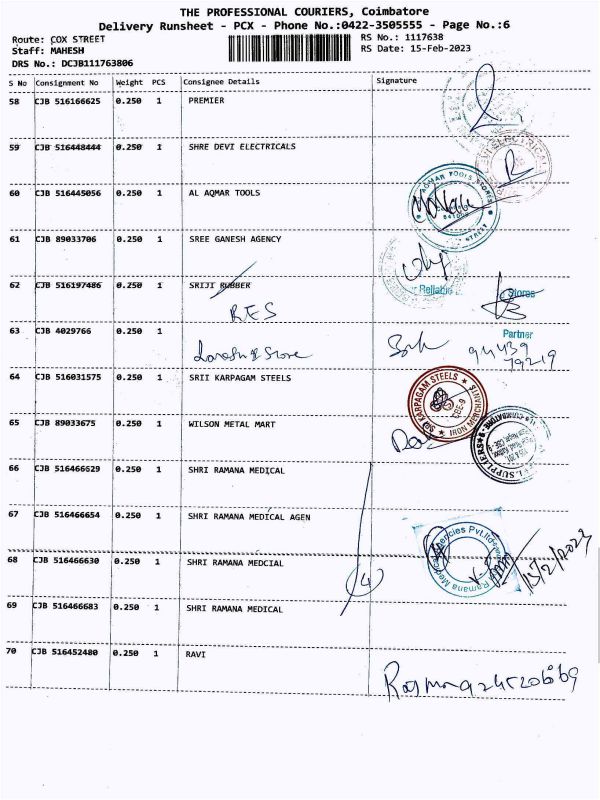 THE PROFESSIONAL COURIERS, Coimbatore
Delivery Runsheet - PCX - Phone No.:0422-3505555 - Page No.:6
Route: COX STREET RS No.: 1117638
Staff: MAHESH RS Date: 15-Feb-2023
DRS No.: DCJB111763806
S No Consignment No Weight PCS Consignee Details Signature
58 CJB 516166625 0.250 1 PREMIER
59 CJB 516448444 0.250 1 SHRE DEVI ELECTRICALS
60 CJB 516445056 0.250 1 AL AQMAR TOOLS
AQMAR TOOLS STORES
STREET
61 CJB 89033706 0.250 1 SREE GANESH AGENCY
62 CJB 516197486 0.250 1 SRIJI RUBBER
Reliable Stores
RES
Partner
63 CJB 4029766 0.250 1
Store 94439
79219
64 CJB 516031575 0.250 1 SRII KARPAGAM STEELS
KARPAGAM STEELS
IRON MERCHANTS
CBE-9
65 CJB 89033675 0.250 1 WILSON METAL MART
SUPPLIERS
66 CJB 516466629 0.250 1 SHRI RAMANA MEDICAL
67 CJB 516466654 0.250 1 SHRI RAMANA MEDICAL AGEN
Ramana Medical Agencies Pvt.ltd
15/2/2023
68 CJB 516466630 0.250 1 SHRI RAMANA MEDCIAL
(4)
69 CJB 516466683 0.250 1 SHRI RAMANA MEDICAL
70 CJB 516452480 0.250 1 RAVI